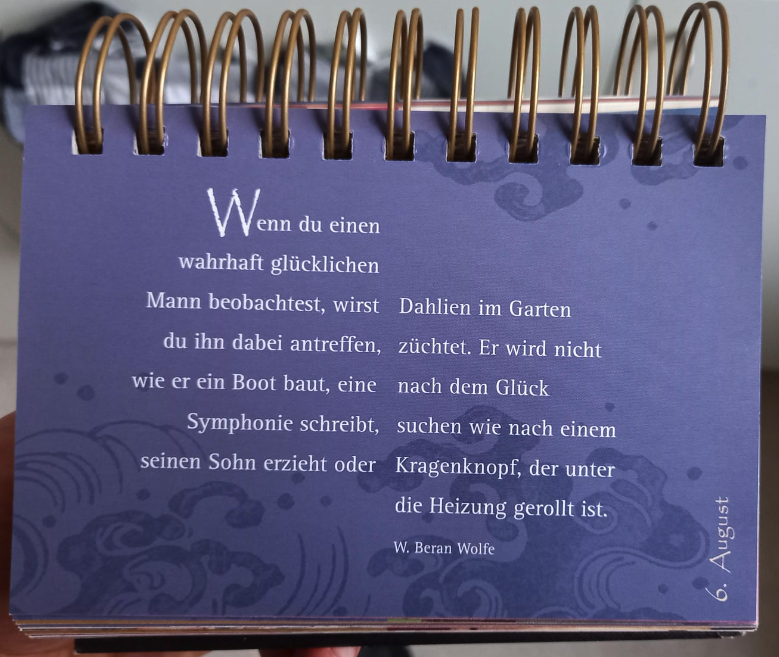 Wenn du einen
wahrhaft glücklichen
Mann beobachtest, wirst
du ihn dabei antreffen,
wie er ein Boot baut, eine
Symphonie schreibt,
seinen Sohn erzieht oder
Dahlien im Garten
züchtet. Er wird nicht
nach dem Glück
suchen wie nach einem
Kragenknopf, der unter
die Heizung gerollt ist.
W. Beran Wolfe
6. August